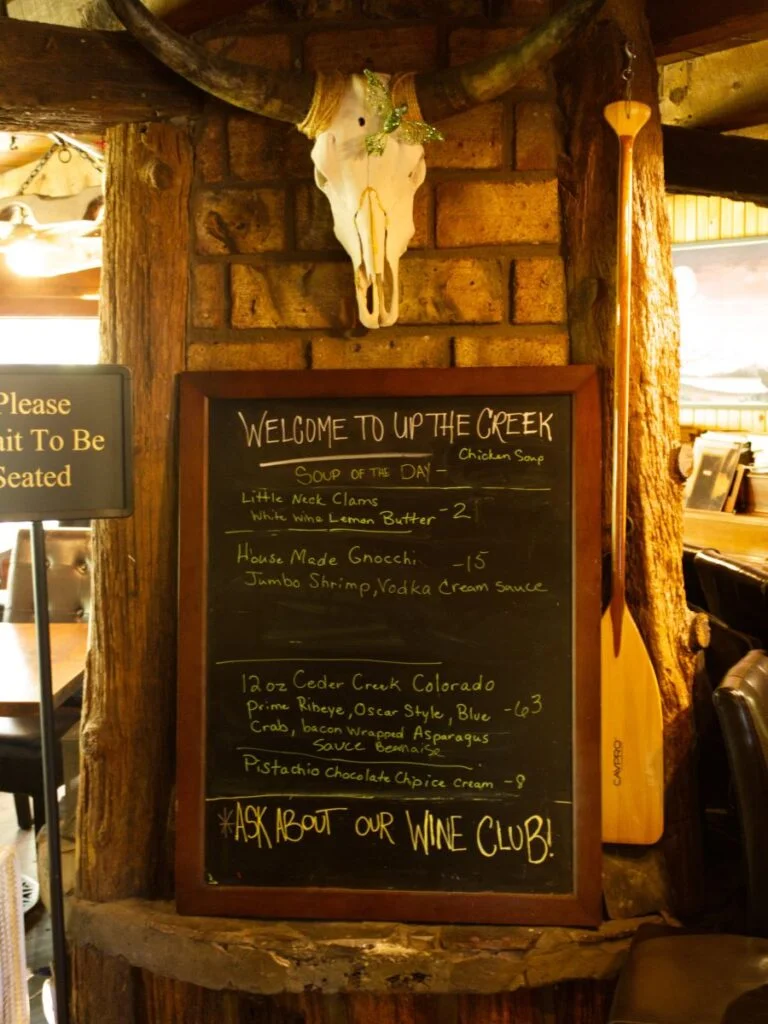 Please
ait To Be
Seated
WELCOME TO UP THE CREEK
Chicken Soup
SOUP OF THE DAY -
Little Neck Clams
White Wine Lemon Butter - 2
House Made Gnocchi - 15
Jumbo Shrimp, Vodka Cream Sauce
12oz Ceder Creek Colorado
Prime Ribeye, Oscar Style, Blue - 63
Crab, bacon wrapped Asparagus
Sauce Bearnaise
Pistachio Chocolate Chip ice cream - 8
*ASK ABOUT OUR WINE CLUB!
CAVPRO